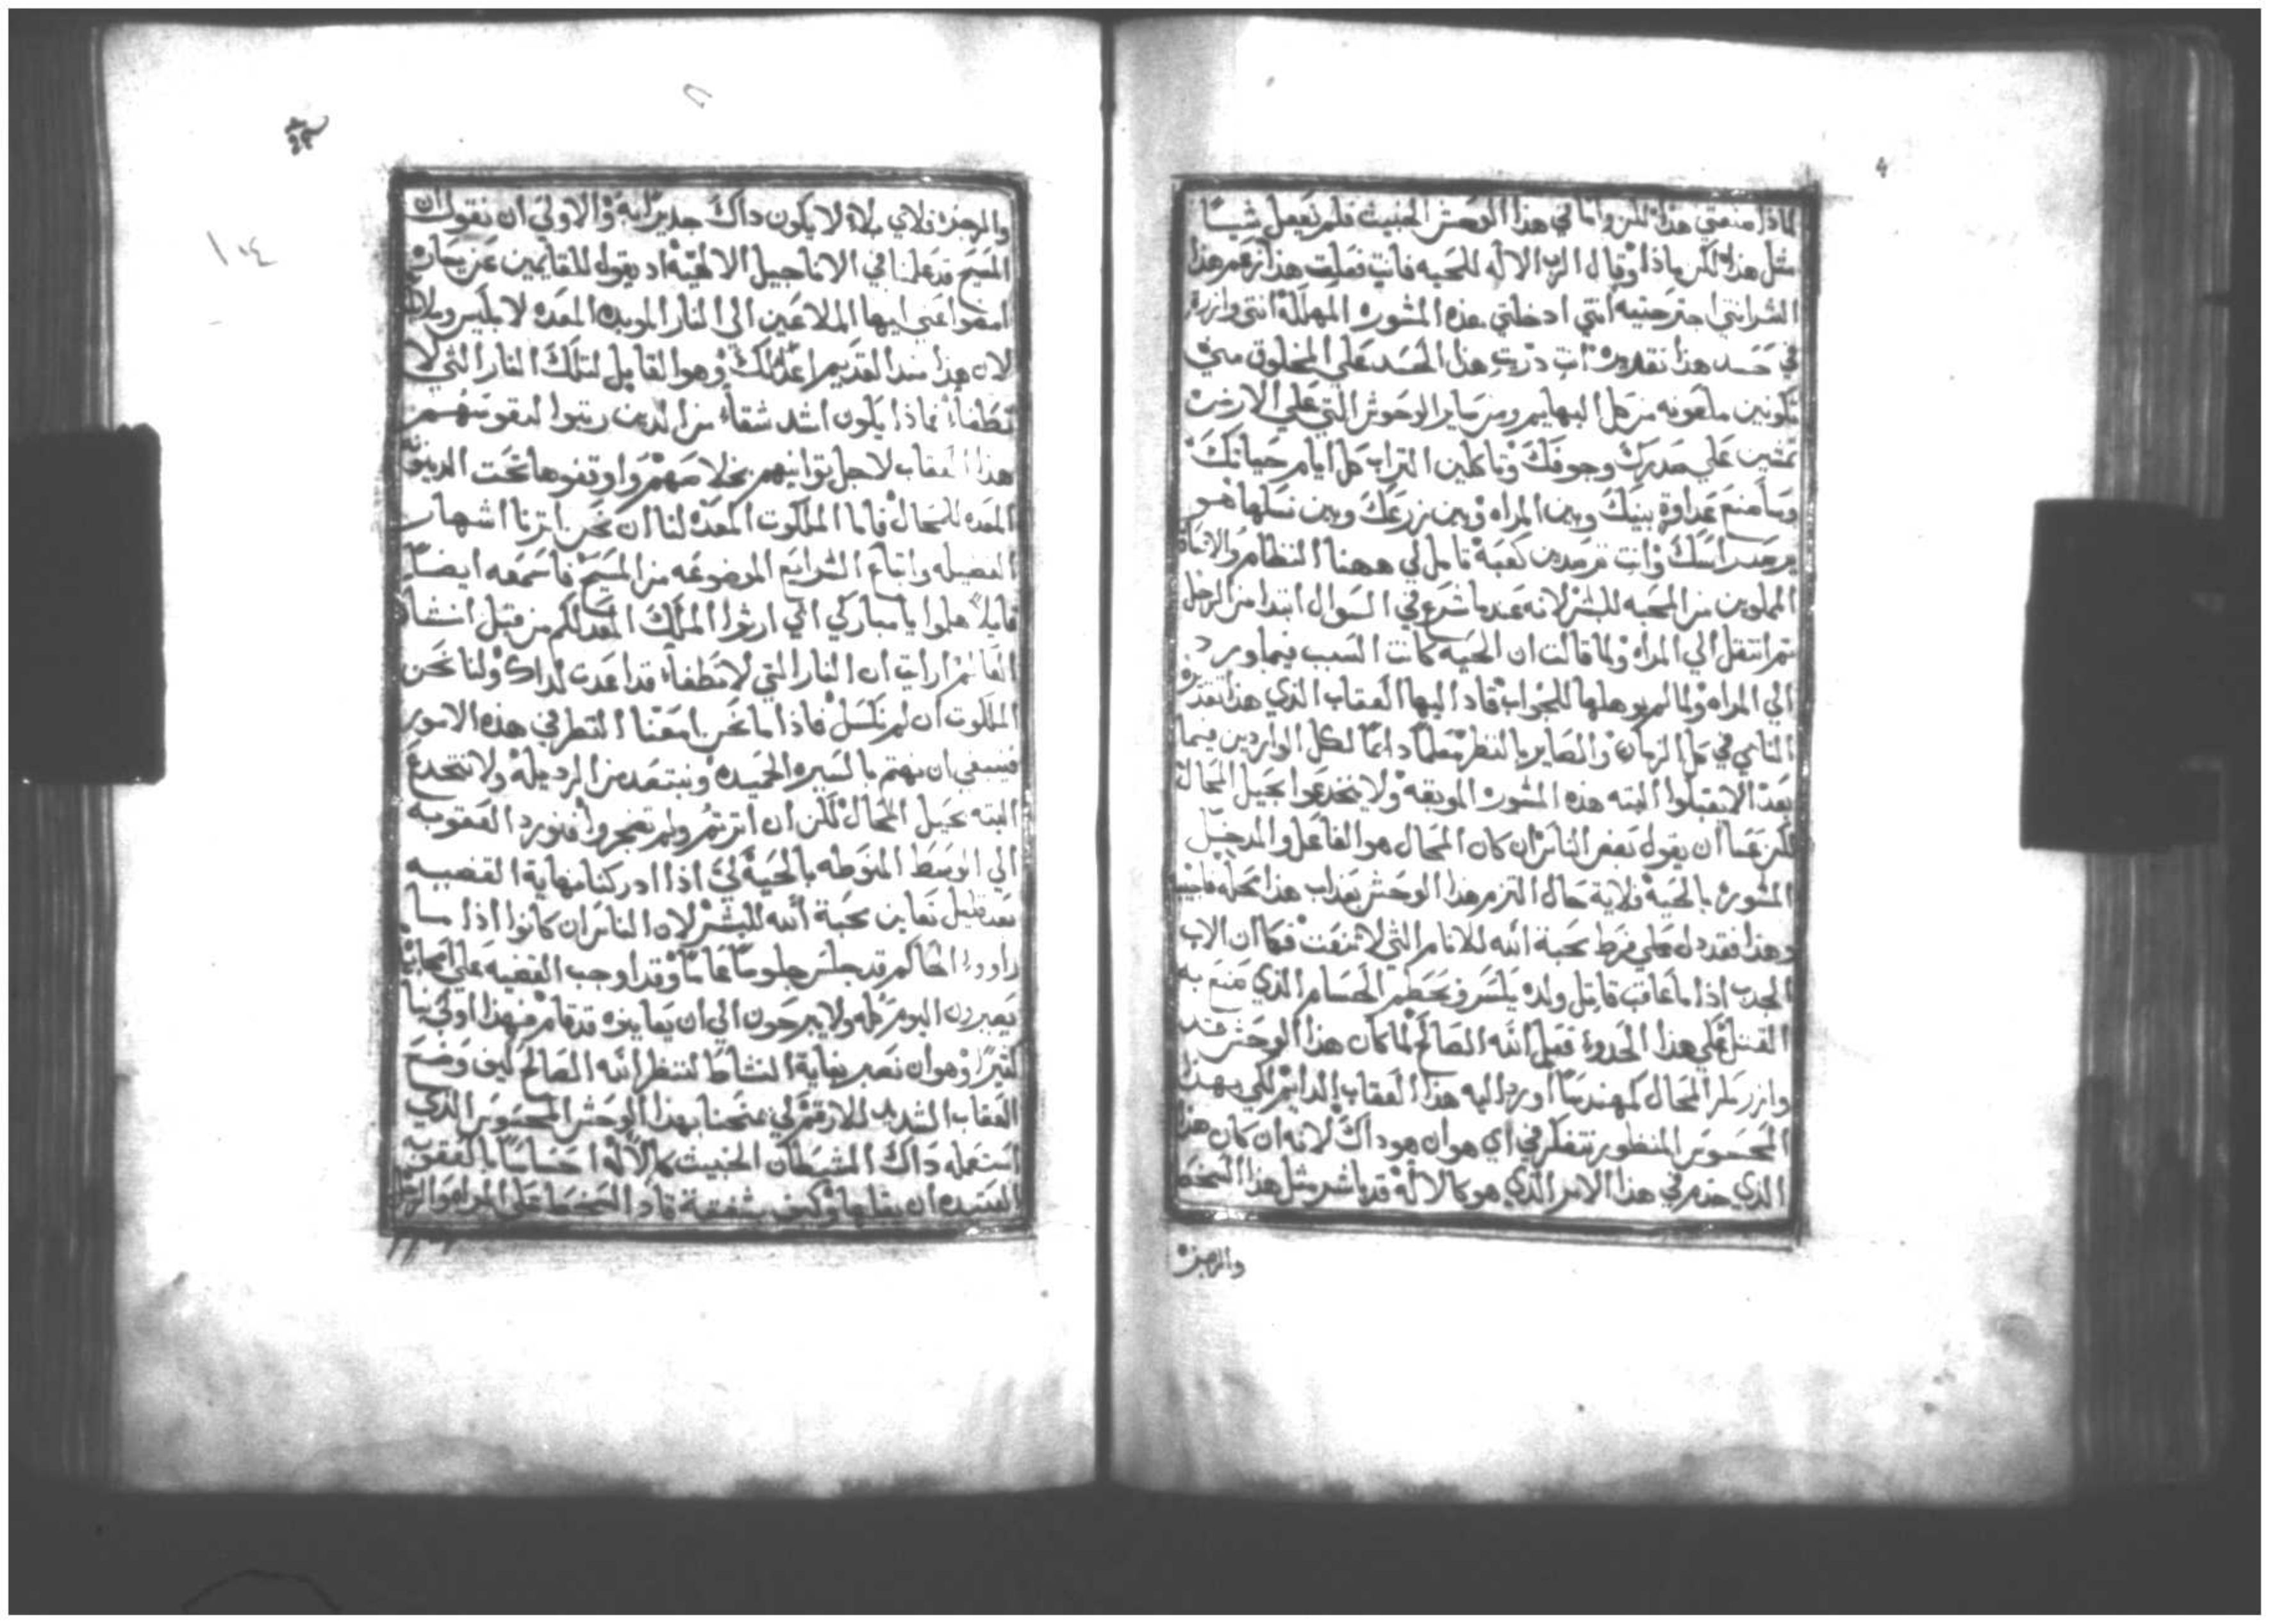 لماذا صنعتي هذا لكن واما في هذا الوحش الخبيث فلم يفعل شيئًا
مثل هذا لكن ماذا وقال الرب الاله للحيه فانتِ فعلتِ هذا زعم هذا
الشر انتي اجترحتيه انتي ادخلتي هذه المشوره المهلكة انتي وازرة
في حسد هذا انتِ ذرّيتِ هذا الحسد علي المخلوق مني
تكونين ملعونه من كل البهايم ومن ساير الوحوش التي علي الارض
تمشين علي صدركِ وجوفكَ وتاكلين التراب كل ايام حياتكَ
وساضع عداوة بينكَ وبين المراه وبين زرعكَ وبين نسلها هو
يرصد راسكَ وانت ترصدين كعبه تامل لي ههنا النظام والاناة
المملوين من المحبه للبشر لانه عندما شرع في السوال ابتدا من الرجل
ثم انتقل الي المراه ولما قالت ان الحيه كانت السبب فيما ورد
الي المراه ولما لم يوهلها للجواب قاد اليها العقاب الذي هذا تقديره
النامي في كل الزمان والصاير بالنظر معلمًا دايمًا لكل الواردين فيما
بعد الا يقبلوا البته هذه المشوره الموبقه ولا ينخدعوا بحيل المحال
لكن عسا ان يقول بعض الناس ان كان المحال هو الفاعل والمدخل
المشوره بالحية فلاية حال التزم هذا الوحش بعذاب هذا محله فاجيبه
وهذا فقد دل علي فرط محبة الله للانام التي لا تنعت فكما ان الاب
الحدب اذا ما عاقب قاتل ولده يكسر ويحطم الحسام الذي صنع به
القتل علي هذا الحدو فعل الله الصالح لما كان هذا الوحش قد
وازر المحال اورد اليه هذا العقاب الدايم لكي بهذا
المحسوس المنظور نتفكر في اي هوان هو داك لانه ان كان هذا
الذي خدم في هذا الامر الذي هو كالاله قد باشر مثل هذا السخط
والرجز
والرجز فلاي بلاء لا يكون داك جديرًا به والاولي ان نقول ان
المسيح قد علمنا في الاناجيل الالهيّة اد يقول للقايمين عن يساره
امضوا عني ايها الملاعين الي النار الموبده المعده لابليس وملايكته
لان هذا منذ القديم اعد لك وهو القابل لتلك النار التي لا
تطفأ فماذا يكون اشد شقاء من الدين رتبوا لنفوسهم
هذا العقاب لاجل توانيهم بخلاصهم واوقفوها تحت الدينونة
المعده للمحال فاما الملكوت المعدّه لنا ان نحن اثرنا اشهار
الفضيله واتباع الشرايع الموضوعه من المسيح فاسمعه ايضًا
قايلاً هلموا يا مباركي ابي ارثوا الملك المعد لكم من قبل انشاء
العالم ارايت ان النار التي لا تطفأ قد اعدت لداك ولنا نحن
الملكوت ان لم نكسل فاذا ما نحن امعنا النظر في هذه الامور
فينبغي ان نهتم بالسيره الحميده ونبتعد من الرديله ولا ننخدع
البته بحيل المحال لكن ان اثرتم ولم تضجروا فنورد العقوبه
الي الوسط المنوطه بالحية لكي اذا ادركنا نهاية القضيه
بعد قليل نعاين محبة الله للبشر لان الناس ان كانوا اذا ما
راووا الحاكم قد جلس جلوسًا عامًا وقد اوجب القضيه علي الجاني
يصبرون اليوم كله ولا يبرحون الي ان يعاينوه قد قام فهذا اولي بنا
كثيرًا وهو ان نصبر بغاية النشاط لننظر الله الصالح كيف وضع
العقاب الشديد للارقم لكي يمنحنا بهذا الوحش المحسوس الذي
استعمله داك الشيطان الخبيث كالاله احساسًا بالعقوبه
العتيده ان يقابلها وكيف بشفقة قاد السخط علي المراه والرجل